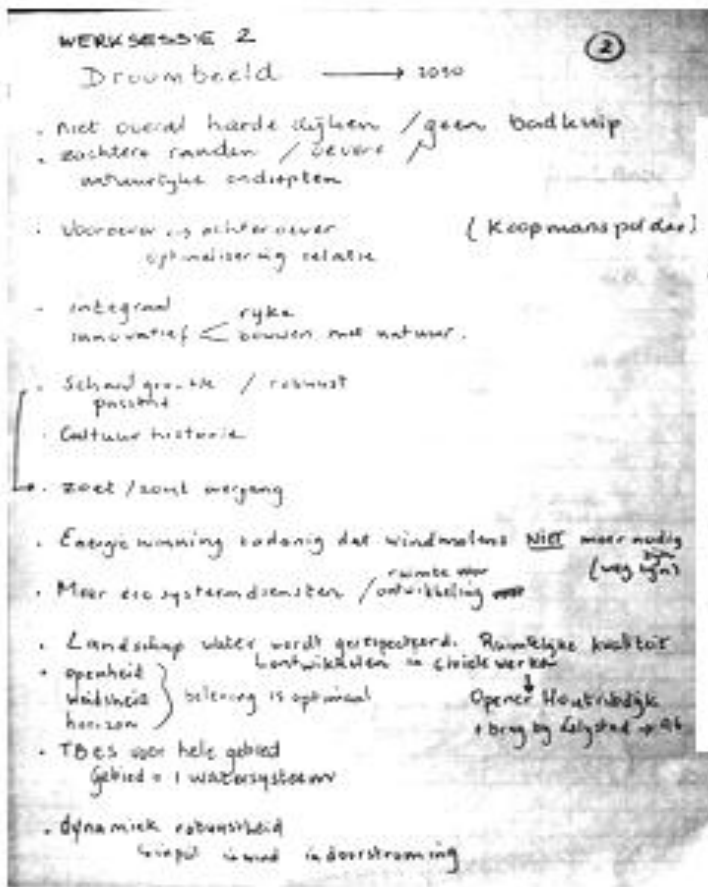 WERKSESSIE 2
②
Droombeeld → 2050
. niet overal harde dijken / geen badkuip
. zachtere randen / oevers /
natuurlijke ondieptes
. Vooroever achteroever (Koopmanspolder)
optimalisering relatie
. integraal rijke
innovatief < bouwen met natuur.
. Schaalgrootte / robuust
passend
. Cultuur historie
. zoet / zout overgang
. Energiewinning zodanig dat windmolens NIET meer nodig
zijn
(weg zijn)
. Meer ecosysteemdiensten / ruimte voor
ontwikkeling
. Landschap water wordt gerespecteerd. Ruimtelijke kwaliteit
ontwikkelen civiele werken
. openheid
weidsheid } beleving is optimaal
horizon
Opener Houtribdijk
+ brug bij Lelystad →
. TBES voor hele gebied
Gebied = 1 watersysteem
. dynamiek robuustheid
wind doorstroming